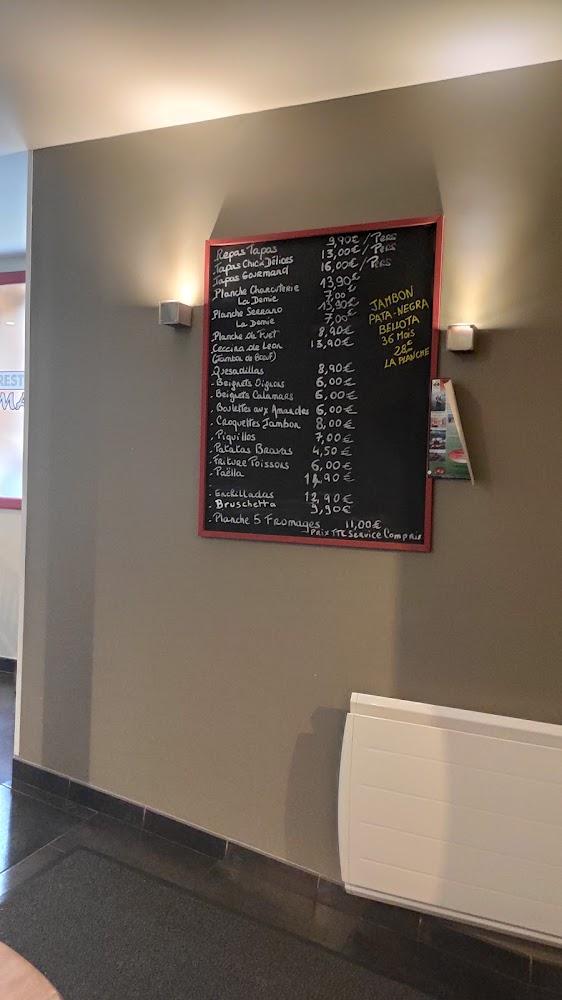 Repas Tapas 9,90€ / Pers
Tapas Chick Délices 13,00€ / Pers
Tapas Gourmand 16,00€ / Pers
Planche Charcuterie 13,90€
La Demie 7,00
Planche Serrano 13,90€
La Demie 7,00€
Planche de Fuet 8,90€
Ceccina de Leon 13,90€
(Jambon de Bœuf)
.Quesadillas 8,90€
.Beignets Oignons 6,00€
.Beignets Calamars 6,00€
.Boulettes aux Amandes 6,00€
.Croquettes Jambon 8,00€
.Piquillos 7,00€
.Patatas Bravas 4,50€
.Friture Poissons 6,00€
.Paëlla 11,90€
.Enchilladas 12,90€
.Bruschetta 9,90€
.Planche 5 Fromages 11,00€
Prix TTC Service Compris
JAMBON
PATA-NEGRA
BELLOTA
36 Mois
28€
LA PLANCHE
REST
MA